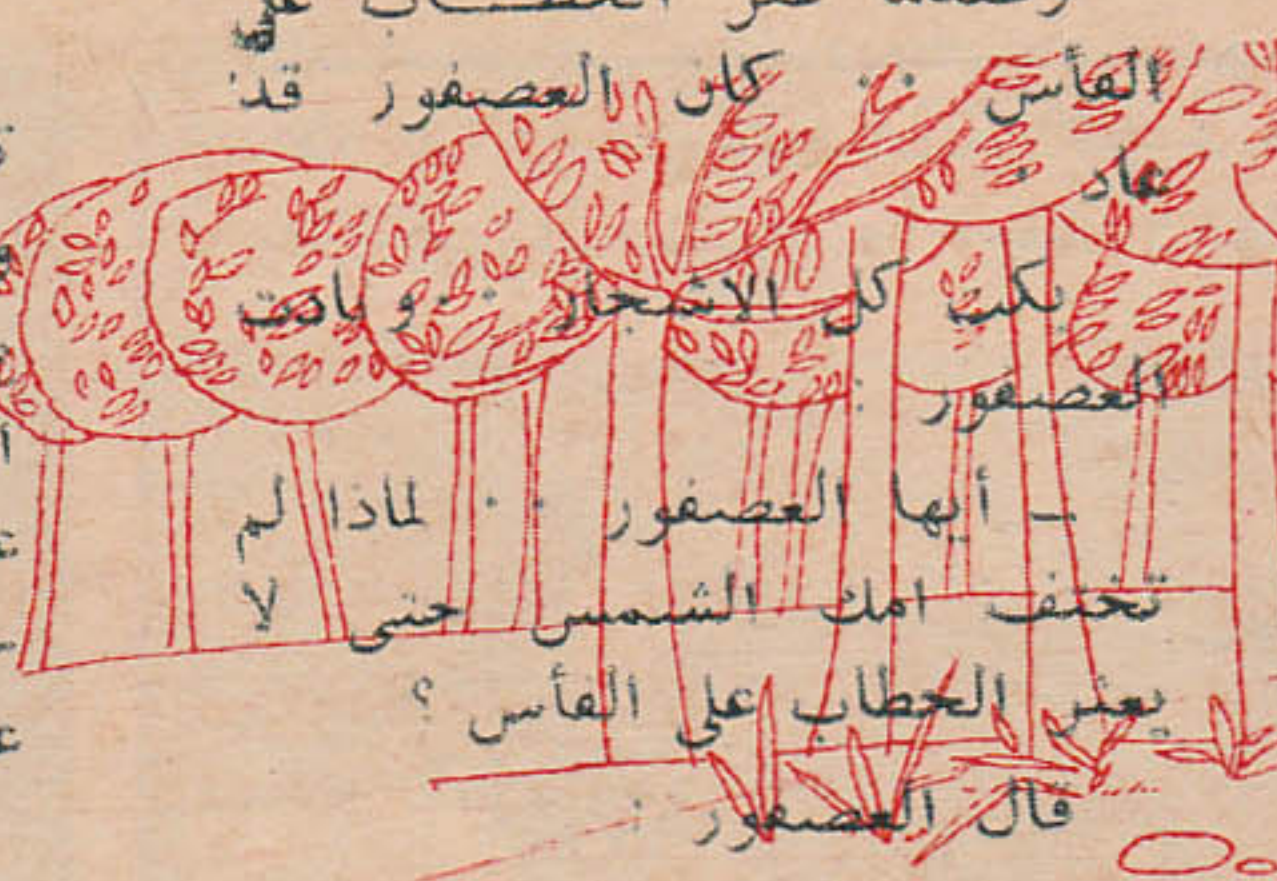 الحطاب على
الفأس .. كان العصفور قد
عاد .
بكت كل الاشجار .. و نادت
العصفور :
ــ أيها العصفور .. لماذا لم
تختف امك الشمس حتى لا
يعثر الحطاب على الفأس ؟
قال العصفور :